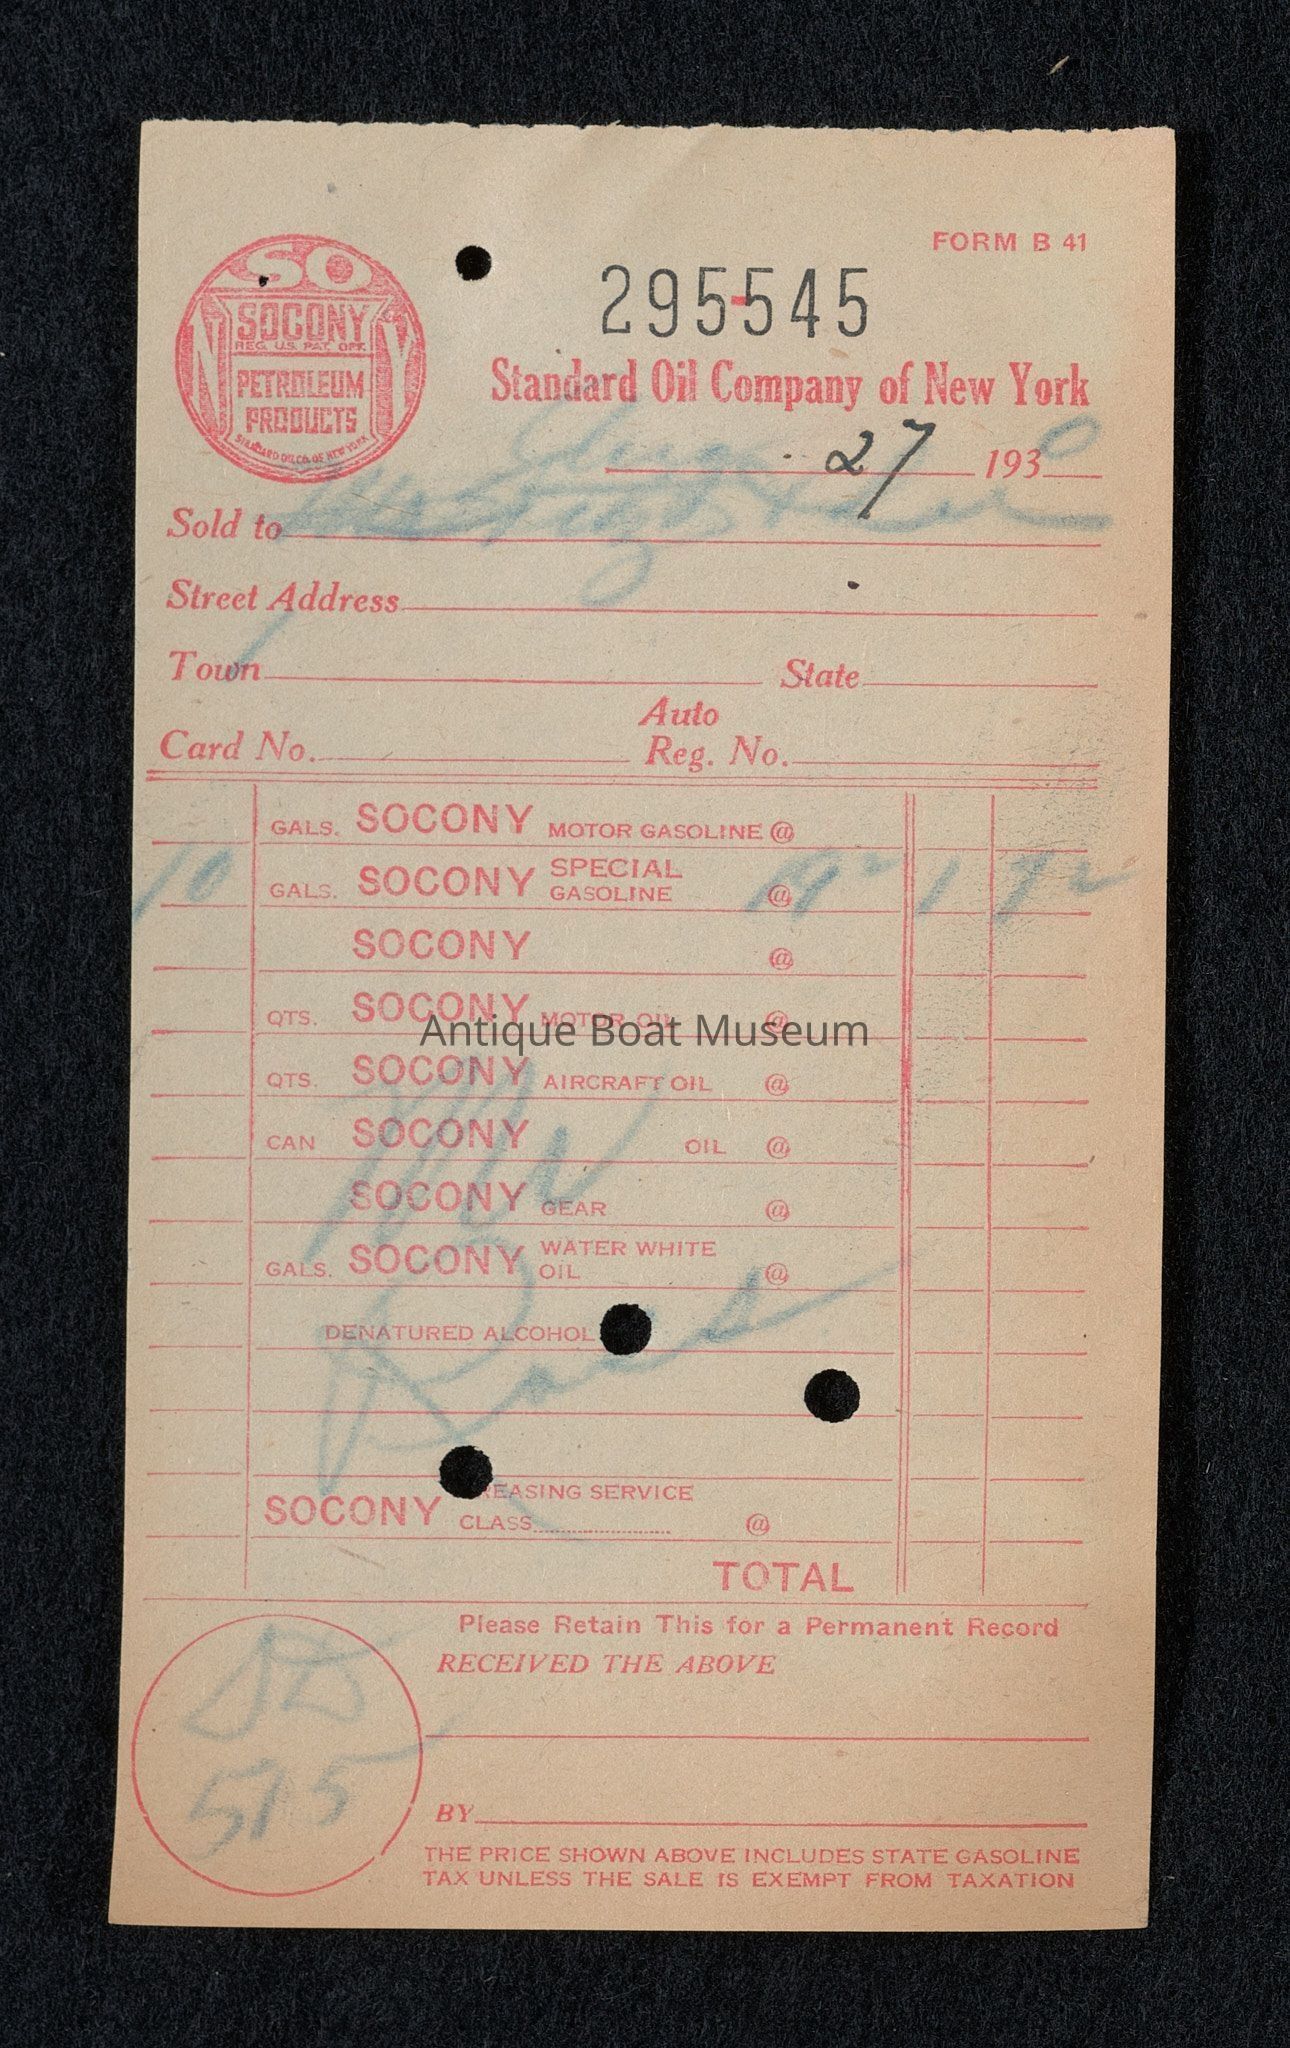 FORM B 41
295-545
SO
NY
SOCONY
REG. U.S. PAT. OFF.
PETROLEUM
PRODUCTS
STANDARD OIL CO. OF NEW YORK
Standard Oil Company of New York
27 1930
Sold to
Street Address
Town State
Card No. Auto Reg. No.
GALS. SOCONY MOTOR GASOLINE @
10 GALS. SOCONY SPECIAL GASOLINE @ 19² 1 92
SOCONY @
QTS. SOCONY MOTOR OIL @
Antique Boat Museum
QTS. SOCONY AIRCRAFT OIL @
CAN SOCONY OIL @
SOCONY GEAR @
GALS. SOCONY WATER WHITE OIL @
DENATURED ALCOHOL
SOCONY REASING SERVICE
CLASS @
TOTAL
Please Retain This for a Permanent Record
RECEIVED THE ABOVE
515
BY
THE PRICE SHOWN ABOVE INCLUDES STATE GASOLINE
TAX UNLESS THE SALE IS EXEMPT FROM TAXATION